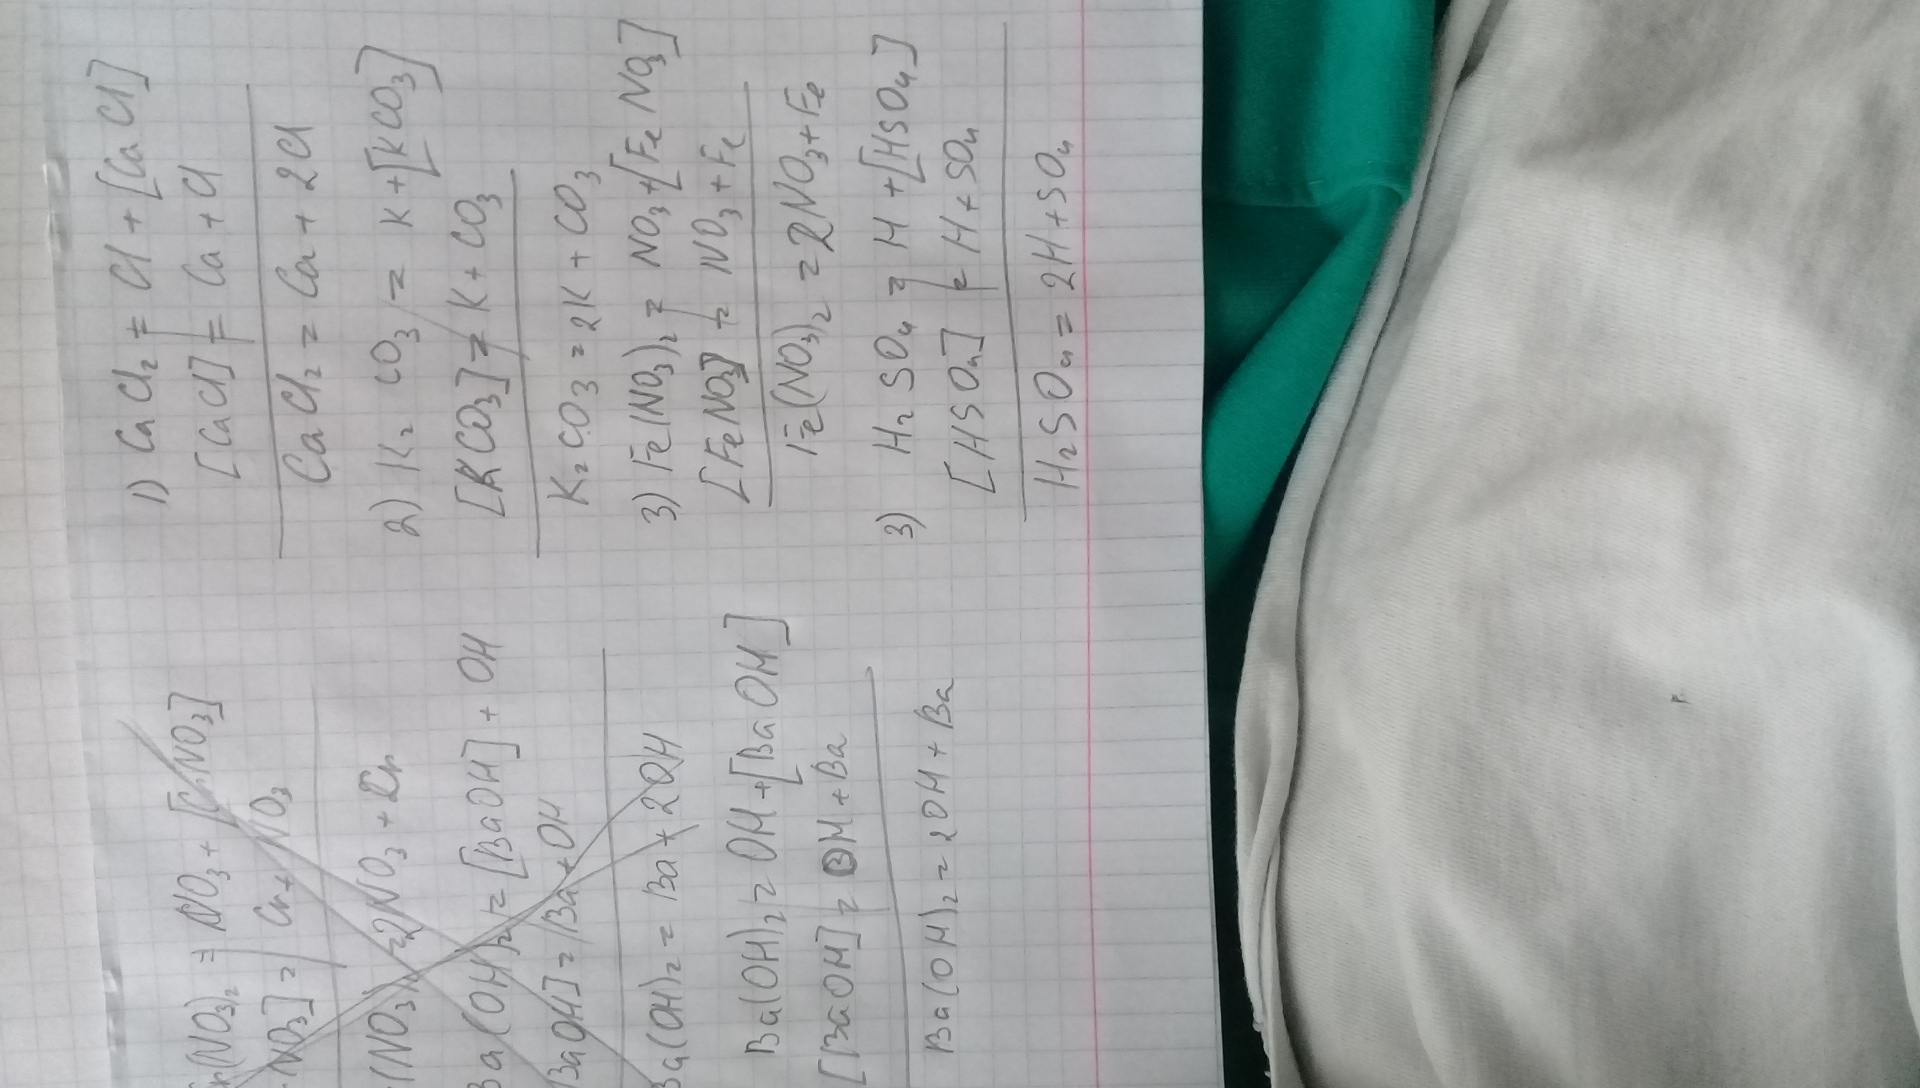 1) CaCl₂ = Cl + [CaCl]
[CaCl] = Ca + Cl
CaCl₂ = Ca + 2Cl
2) K₂CO₃ = K + [KCO₃]
[KCO₃] = K + CO₃
K₂CO₃ = 2K + CO₃
3) Fe(NO₃)₂ = NO₃ + [FeNO₃]
[FeNO₃] = NO₃ + Fe
Fe(NO₃)₂ = 2NO₃ + Fe
3) H₂SO₄ = H + [HSO₄]
[HSO₄] = H + SO₄
H₂SO₄ = 2H + SO₄
(NO₃)₂ = NO₃ + [CrNO₃]
NO₃] = Cr + NO₃
(NO₃)₂ = 2NO₃ + Cr
Ba(OH)₂ = [BaOH] + OH
BaOH] = Ba + OH
Ba(OH)₂ = Ba + 2OH
Ba(OH)₂ = OH + [BaOH]
[BaOH] = OH + Ba
Ba(OH)₂ = 2OH + Ba